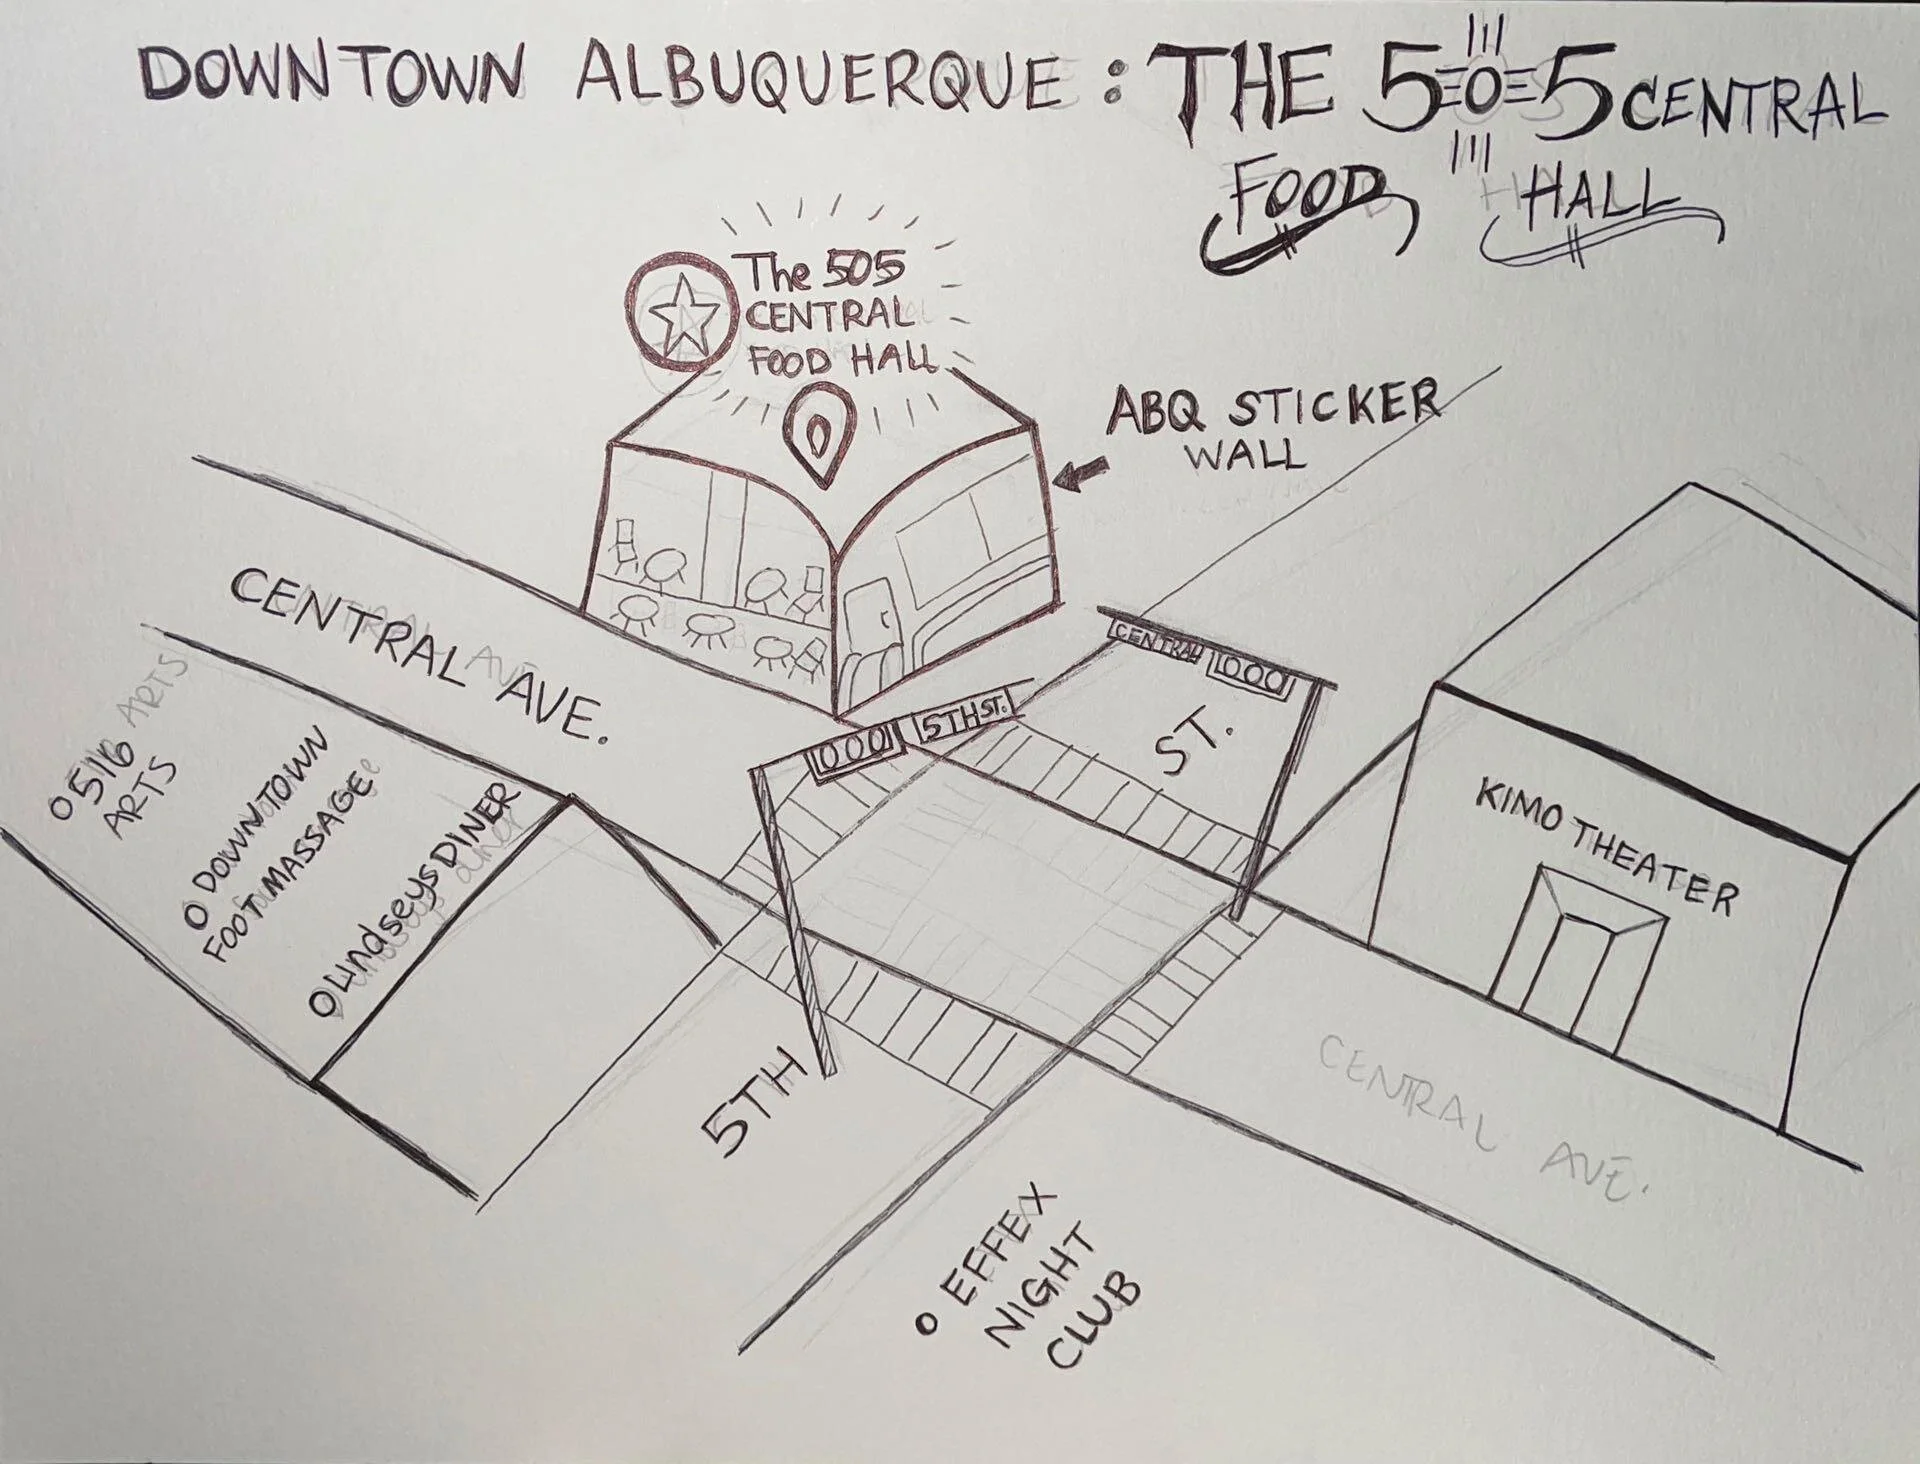 DOWNTOWN ALBUQUERQUE : THE 505 CENTRAL
FOOD HALL
The 505
CENTRAL
FOOD HALL
ABQ STICKER
WALL
CENTRAL AVE.
CENTRAL
5TH ST.
ST.
KIMO THEATER
516 ARTS
ARTS
DOWNTOWN
FOOT MASSAGE
LINDSEYS DINER
5TH
CENTRAL AVE.
EFFEX
NIGHT
CLUB